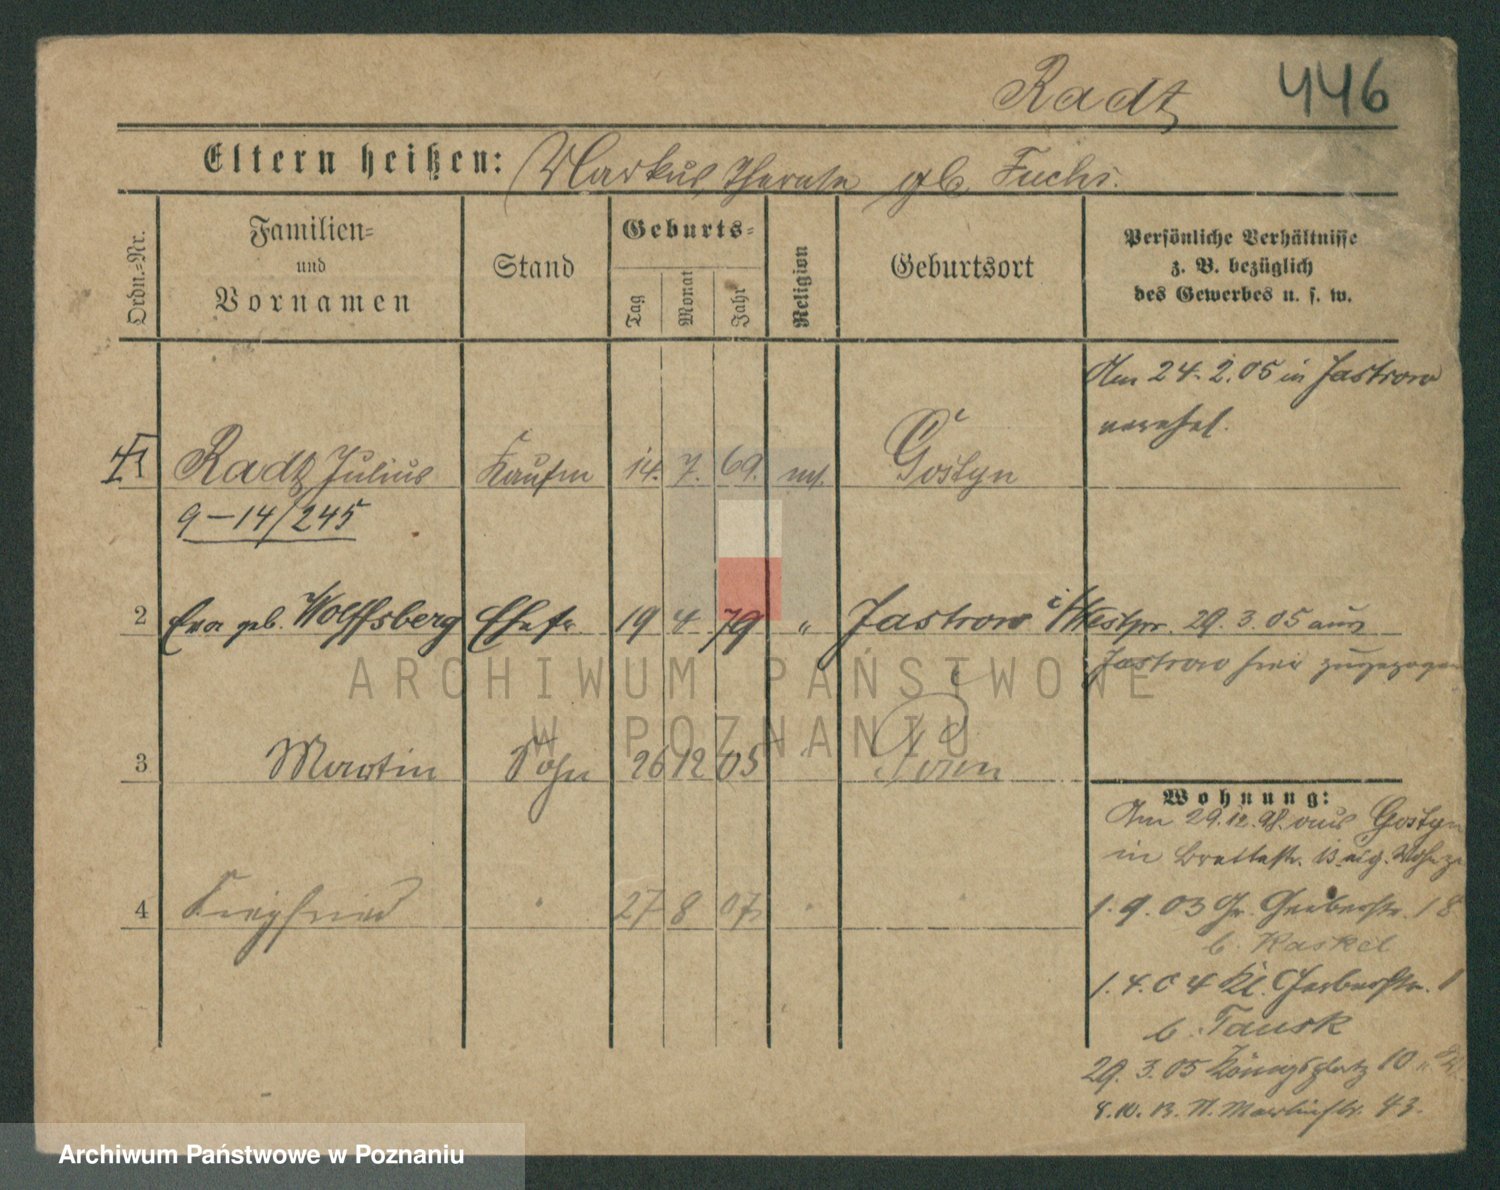 Radt
446
Eltern heißen: Markus, Therese geb Fuchs.
Ordn.-Nr.
Familien-
und
Vornamen
Stand
Geburts-
Tag
Monat
Jahr
Religion
Geburtsort
Persönliche Verhältnisse
z. B. bezüglich
des Gewerbes u. s. w.
Am 24.2.05 in Jastrow
verehel.
1 Radt Julius Kaufm 14. 7. 69. mos. Gostyn
9-14/245
2 Eva geb. Wolffsberg Ehefr. 19 4 79 " Jastrow i/Westpr. 29.3.05 aus
Jastrow hier zugezogen
3 Martin Sohn 26 12 05 Posen
4 Siegfried 27 8 07
Wohnung:
Am 29.12.98. aus Gostyn
in Breitestr. 13
1.9.03 Gr. Gerberstr. 18
b. Kaskel
1.4.04 Kl. Gerberstr.
b. Tausk
29.3.05 Königsplatz 10
8.10. St. Martinstr. 43.
ARCHIWUM PAŃSTWOWE
W POZNANIU
Archiwum Państwowe w Poznaniu